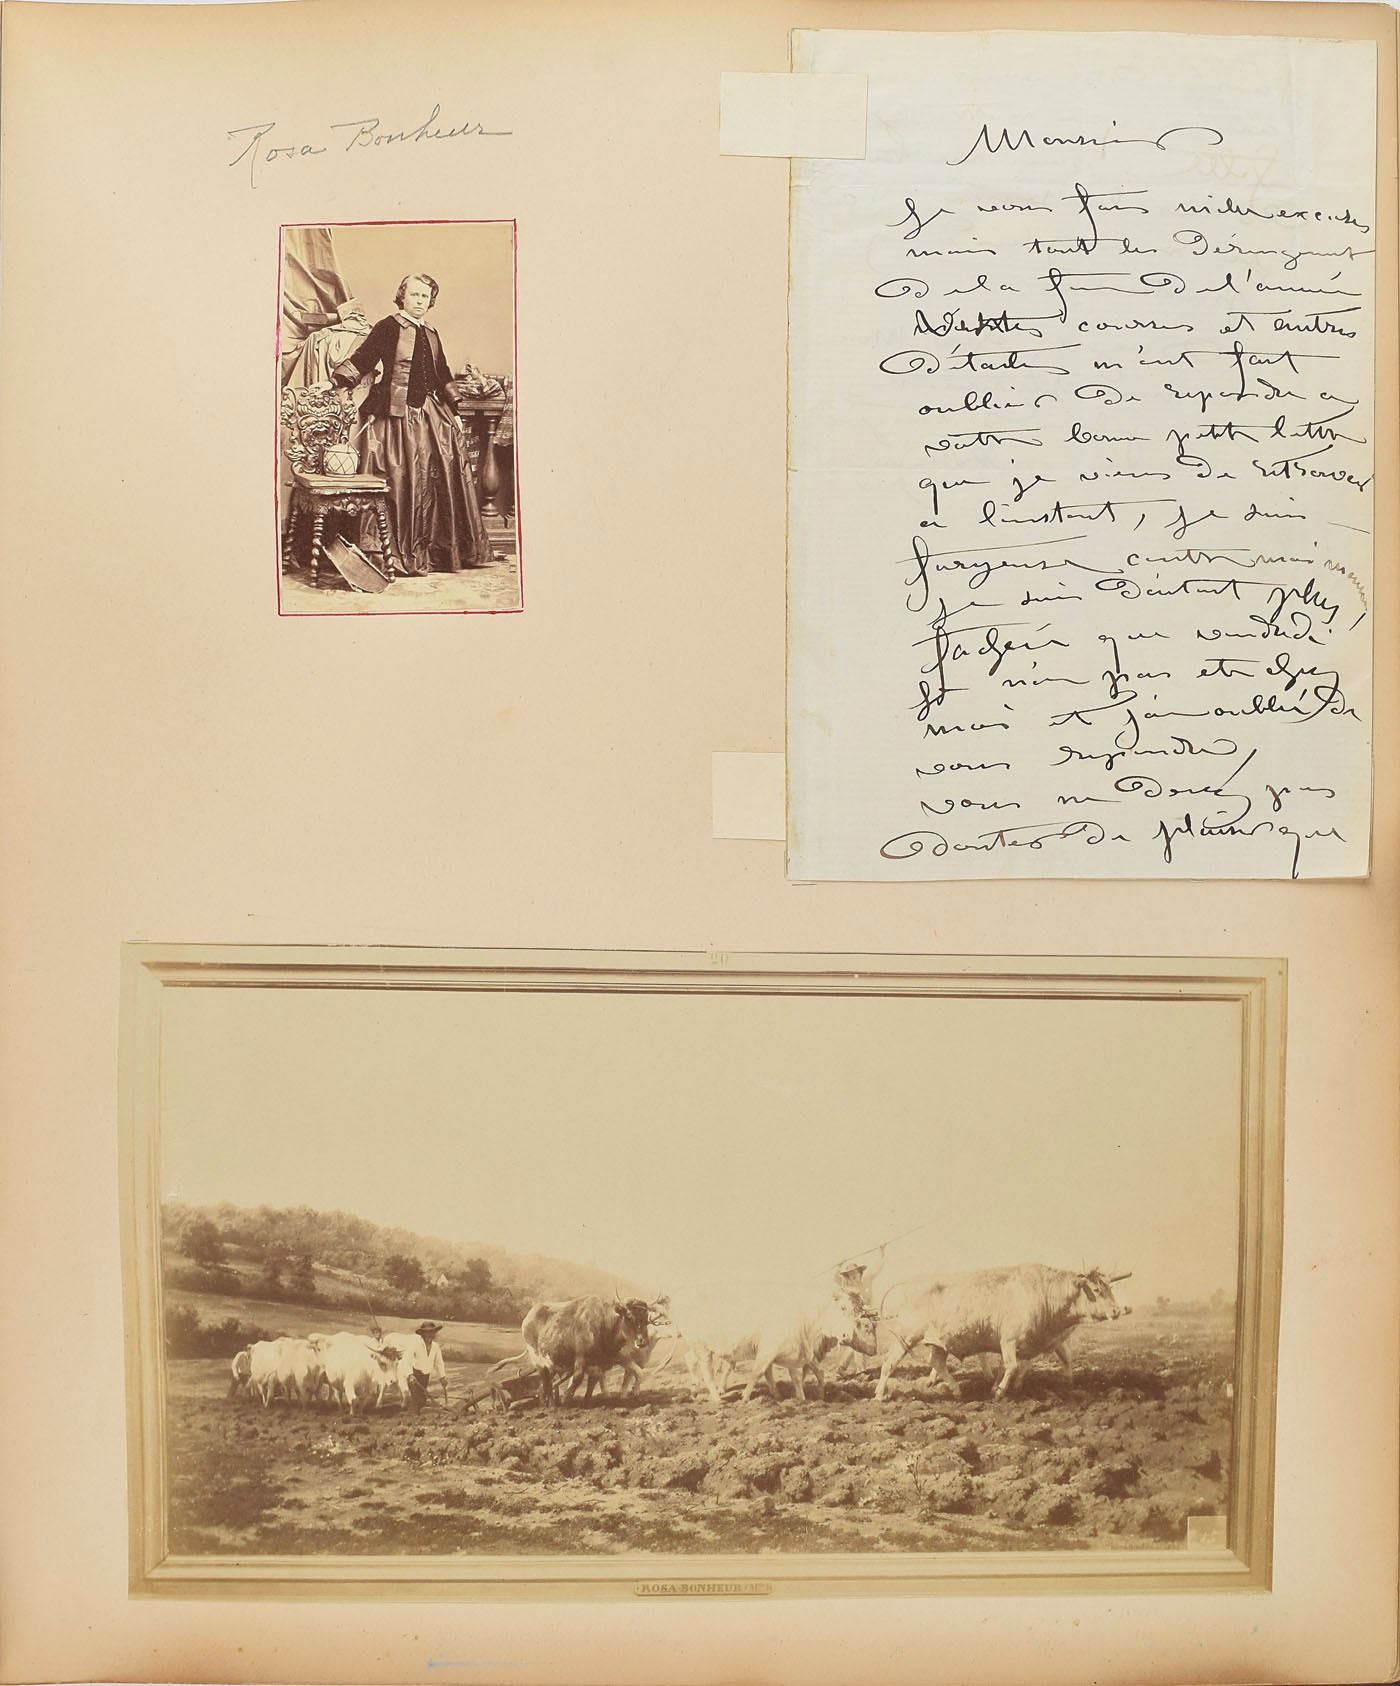 Rosa Bonheur
Monsieur
Je vous fais mille excuses
mais tout les Dérangement
De la fin De l'année
courses et autres
Détailes m'ont fait
oublier De repondre a
votre bonne petite lettre
que je viens De retrouver
a l'instant, je suis
furyeuse contre moi meme
je suis D'autant plus
fachée que vendredi
je n'ai pas ete chez
moi et j'ai oublié De
vous repondre,
vous ne Devez pas
Douter Du plaisir que
20
ROSA BONHEUR (Mlle)